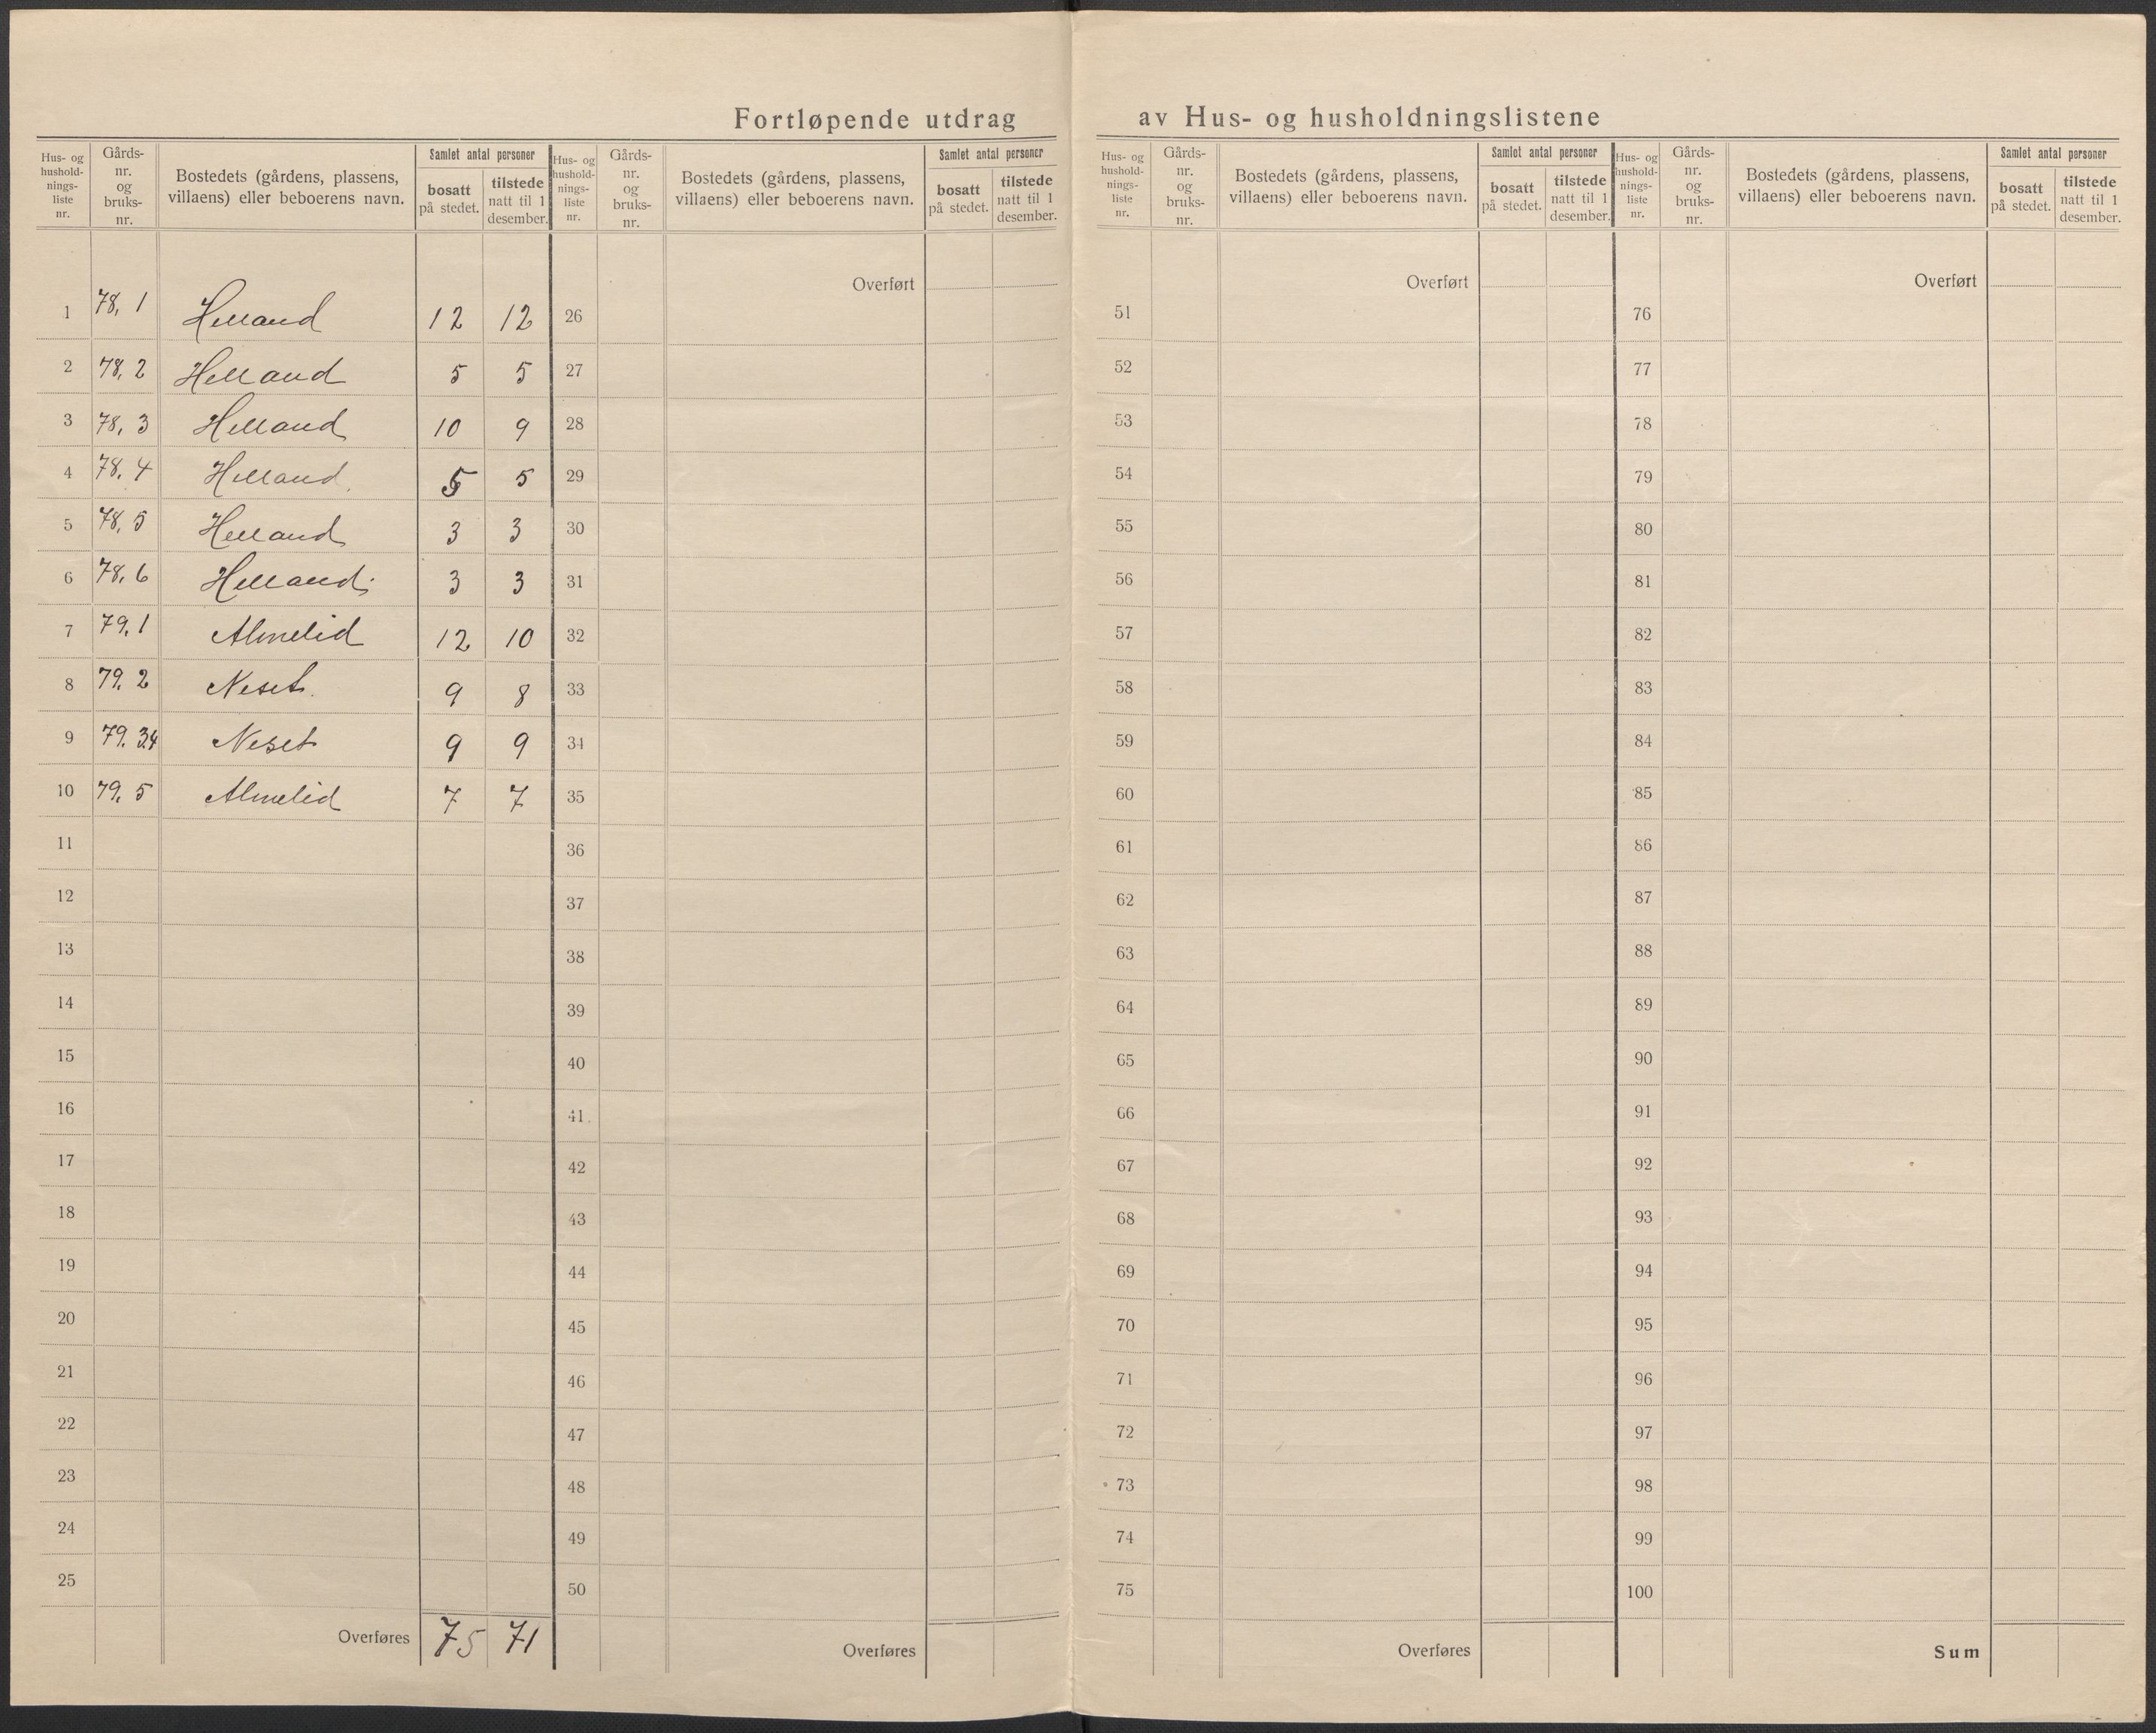 Fortløpende utdrag av Hus- og husholdningslistene
Hus- og hushold-nings-liste nr. Gårds-nr. og bruks-nr. Bostedets (gårdens, plassens, villaens) eller beboerens navn. Samlet antal personer bosatt på stedet. tilstede natt til 1 desember.
1 78, 1 Helland 12 12
2 78, 2 Helland 5 5
3 78, 3 Helland 10 9
4 78, 4 Helland 5 5
5 78, 5 Helland 3 3
6 78, 6 Helland 3 3
7 79, 1 Almelid 12 10
8 79, 2 Neset 9 8
9 79, 3,4 Neset 9 9
10 79, 5 Almelid 7 7
11
12
13
14
15
16
17
18
19
20
21
22
23
24
25
Overføres 75 71
Hus- og hushold-nings-liste nr. Gårds-nr. og bruks-nr. Bostedets (gårdens, plassens, villaens) eller beboerens navn. Samlet antal personer bosatt på stedet. tilstede natt til 1 desember.
Overført
26
27
28
29
30
31
32
33
34
35
36
37
38
39
40
41
42
43
44
45
46
47
48
49
50
Overføres
Hus- og hushold-nings-liste nr. Gårds-nr. og bruks-nr. Bostedets (gårdens, plassens, villaens) eller beboerens navn. Samlet antal personer bosatt på stedet. tilstede natt til 1 desember.
Overført
51
52
53
54
55
56
57
58
59
60
61
62
63
64
65
66
67
68
69
70
71
72
73
74
75
Overføres
Hus- og hushold-nings-liste nr. Gårds-nr. og bruks-nr. Bostedets (gårdens, plassens, villaens) eller beboerens navn. Samlet antal personer bosatt på stedet. tilstede natt til 1 desember.
Overført
76
77
78
79
80
81
82
83
84
85
86
87
88
89
90
91
92
93
94
95
96
97
98
99
100
Sum